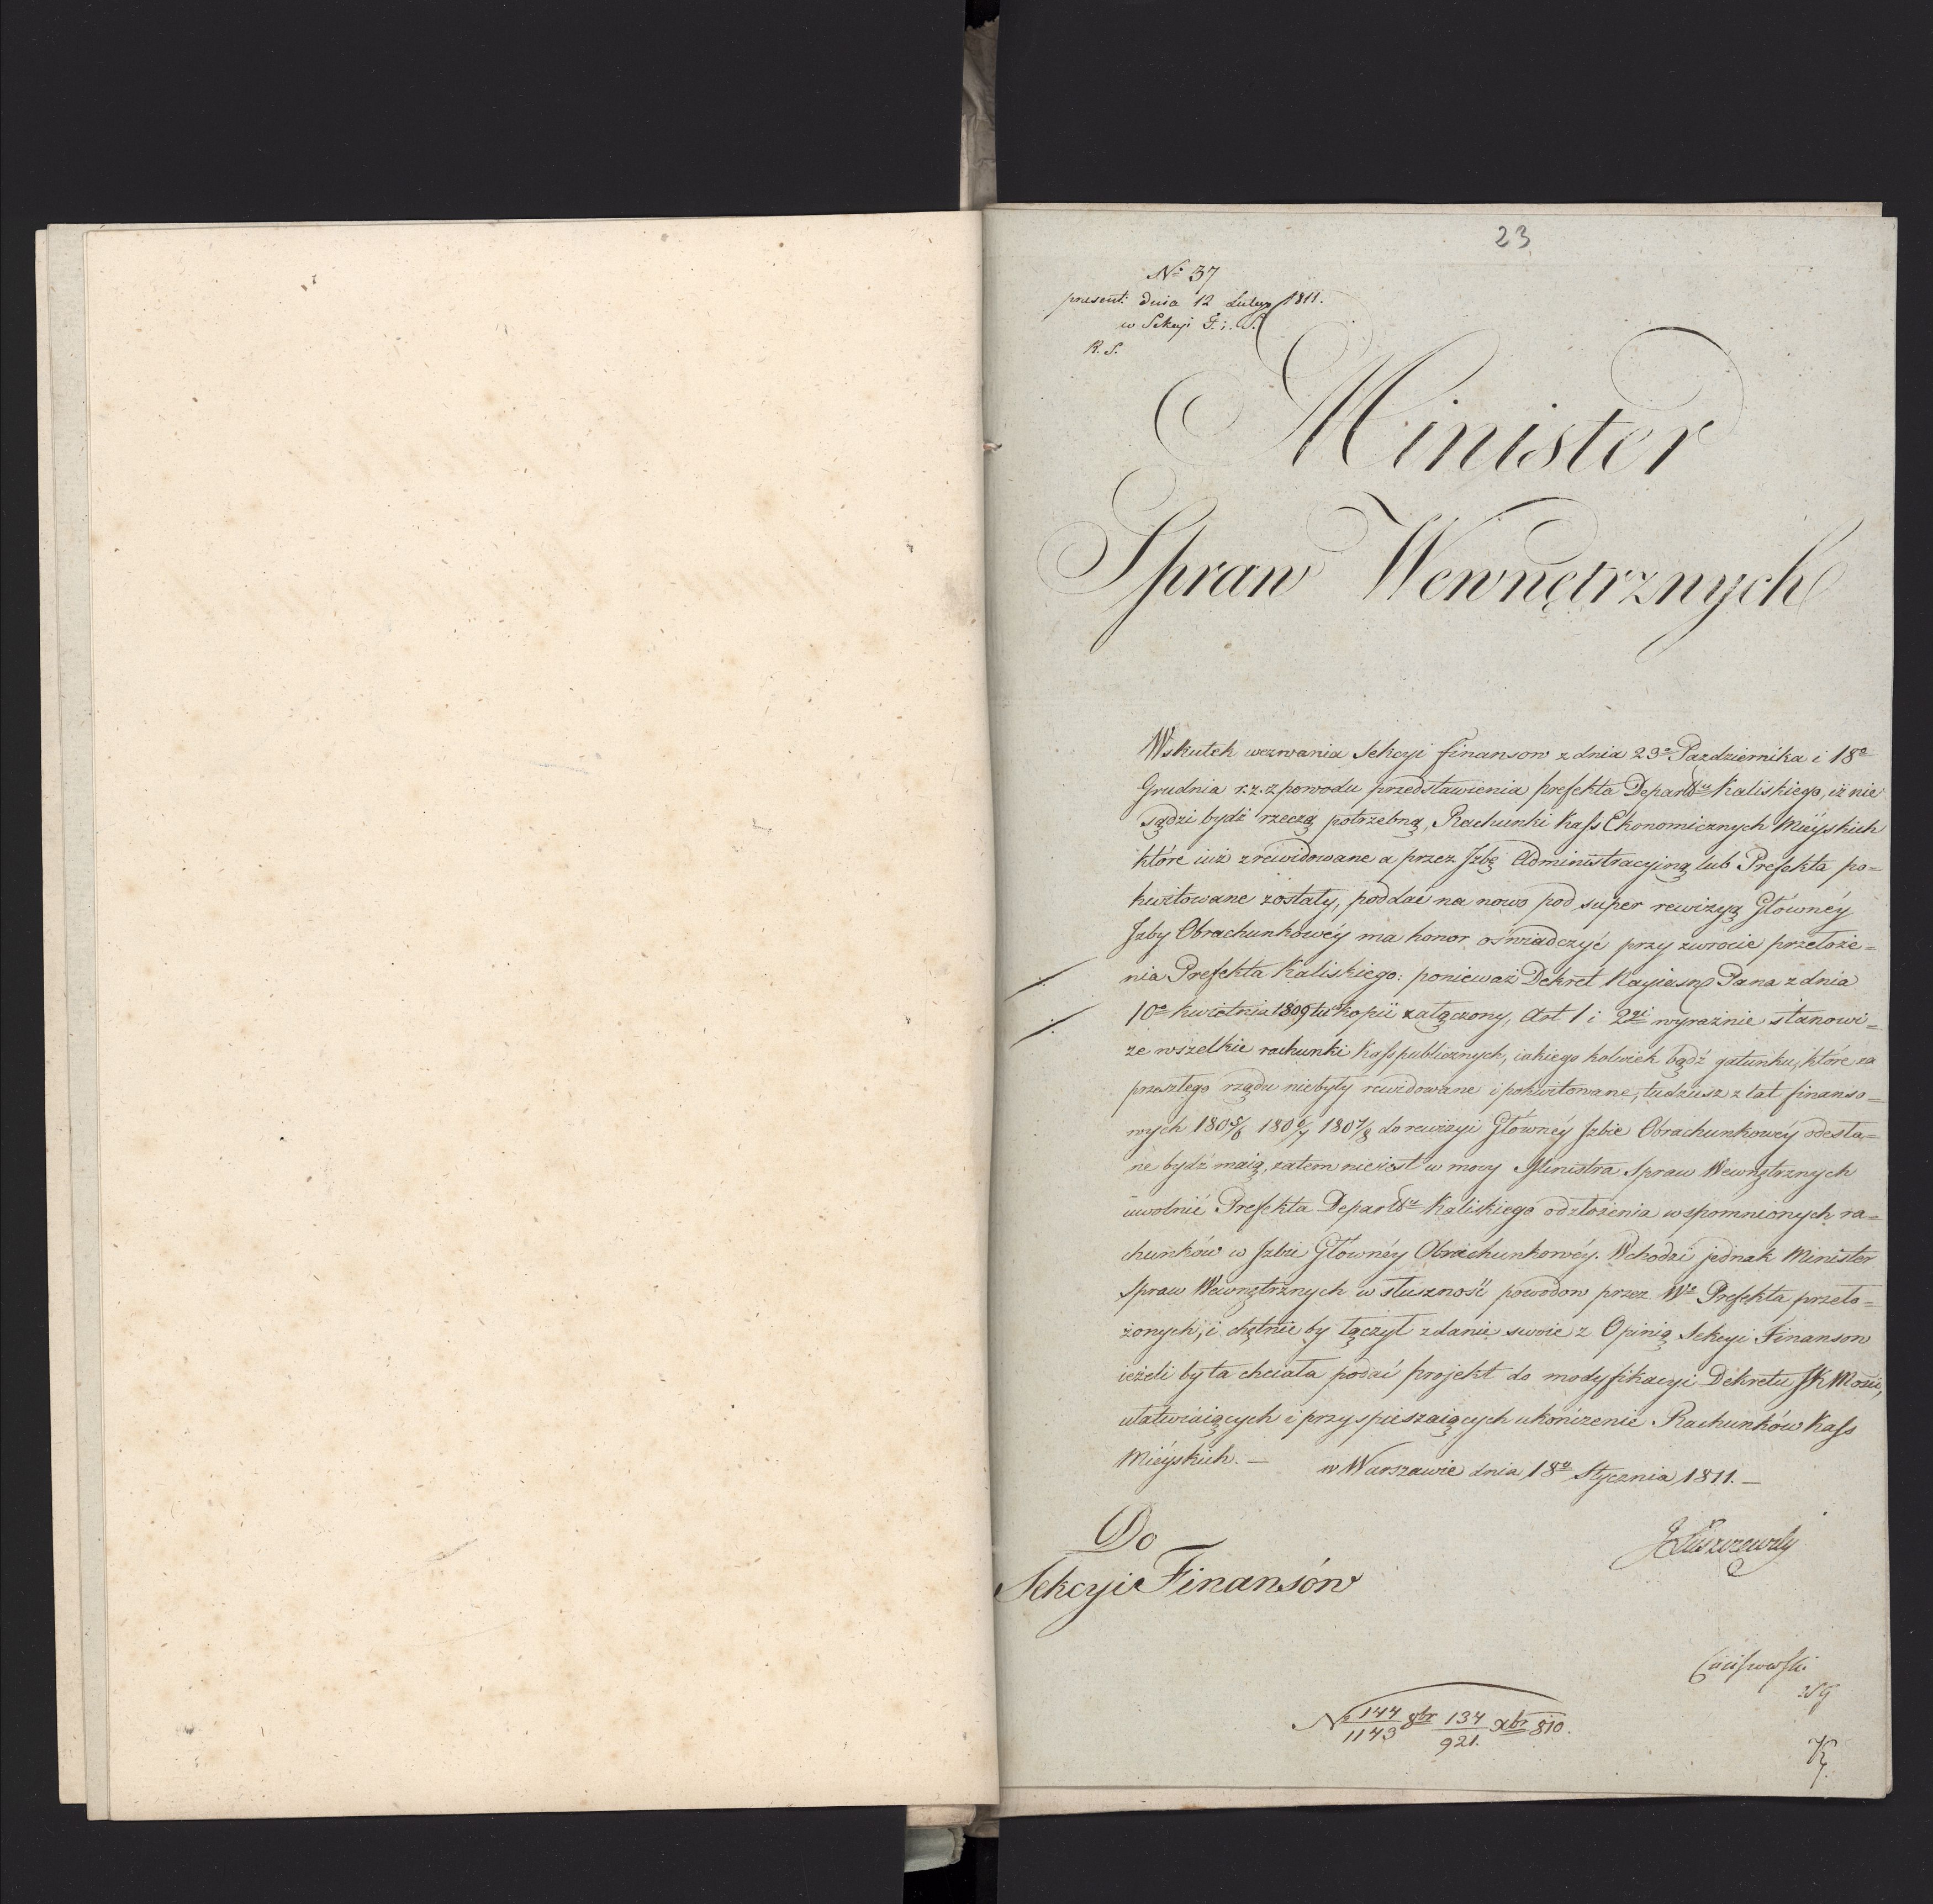 23
No 37
present: dnia 12 Lutego 1811.
w Sekcyi F. i. S.
R. S.
Minister
Spraw Wewnętrznych
Wskutek wezwania Sekcyi finansow z dnia 23o Pazdziernika i 18o
Grudnia r. z. z powodu przedstawienia prefekta Departtu Kaliskiego, iż nie
sądzi bydź rzeczą potrzebną, Rachunki Kass Ekonomicznych Mieyskich
które iuż zrewidowane a przez Izbę Administracyiną lub Prefekta po=
kwitowane zostały, poddać na nowo pod super rewizyą Główney
Izby Obrachunkowey ma honor oświadczyć przy zwrocie przełoże=
nia Prefekta Kaliskiego: ponieważ Dekret Nayiasn Pana z dnia
10o kwietnia 1809 tu w kopii załączony, Art 1 i 2gi wyraźnie stanowi=
ze wszelkie rachunki Kass publicznych, iakiego kolwiek bądź gatunku, które za
przeszłego rządu niebyły rewidowane i pokwitowane, tudziesz z lat finanso=
wych 1805/6 1806/7 1807/8 do rewizyi Główney Izbie Obrachunkowey odesła=
ne bydź maią, zatem nieiest w mocy Ministra Spraw Wewnętrznych
uwolnić Prefekta Departtu Kaliskiego od złożenia wspomnionych ra=
chunków w Izbie Główney Obrachunkowey. Wchodzi jednak Minister
Spraw Wewnętrznych w słuszność powodow przez Wo Prefekta przeło=
żonych, i chętnie by łączył zdanie swoie z Opinią Sekcyi Finansow
ieżeli by ta chciała podać projekt do modyfikacyi Dekretu JK Mości,
ułatwiaiących i przyspieszaiących ukończenie Rachunków Kass
Mieyskich. — w Warszawie dnia 18o Stycznia 1811. —
Do
Sekcyi Finansów
JŁuszczewsky
No 144/1143 8br 134/921. xbr 810.